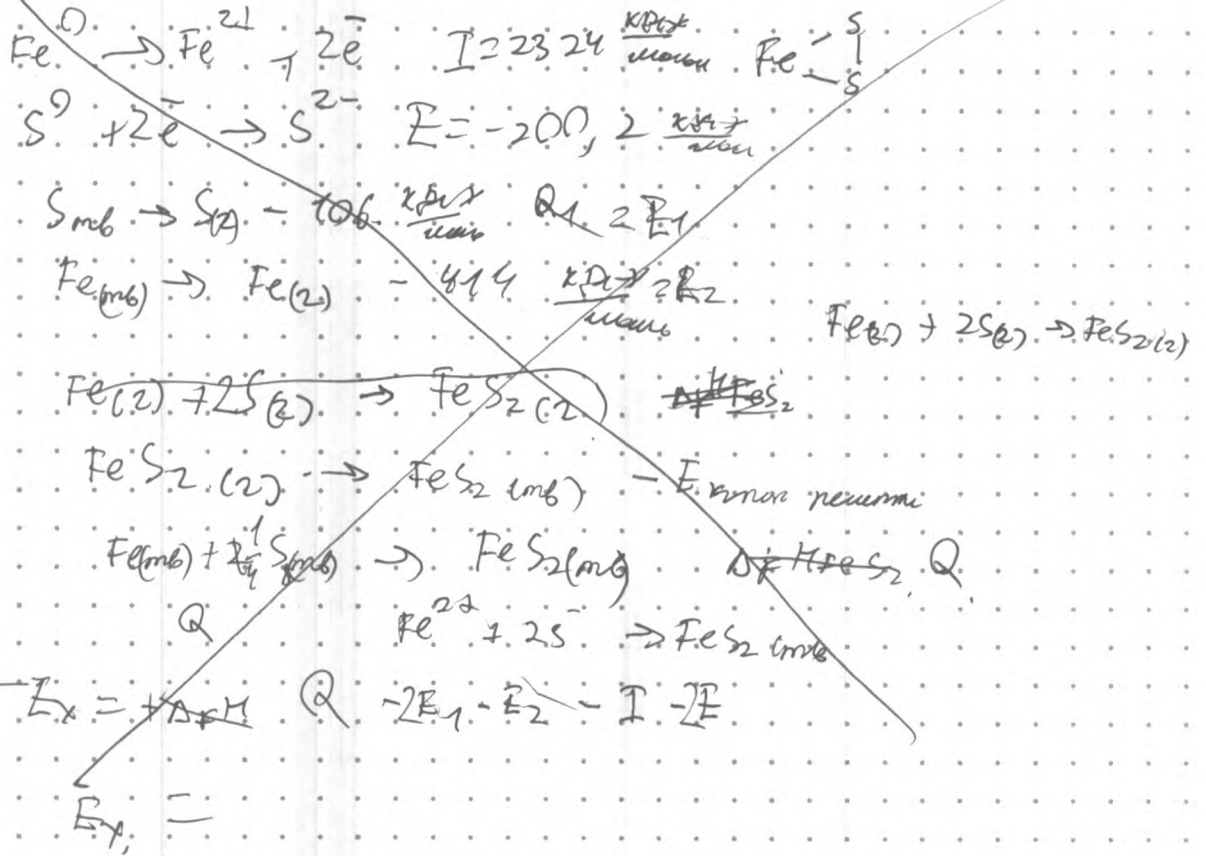 Fe⁰ → Fe²⁺ + 2ē I = 2324 кДж/моль Fe S S
S⁰ + 2ē → S²⁻ E = -200,2 кДж/моль
Sтв → S(г) - 106 кДж/моль Q1 = E1
Fe(тв) → Fe(г) - 414 кДж/моль = E2
Fe(г) + 2S(г) → FeS2(г)
Fe(г) + 2S(г) → FeS2(г)
FeS2(г) → FeS2(тв) - Eкрист решетки
Fe(тв) + 2 1/4 S(тв) → FeS2(тв) Q
Q Fe²⁺ + 2S⁻ → FeS2(тв
-Ex = Q - 2E1 - E2 - I - 2E
Ex =